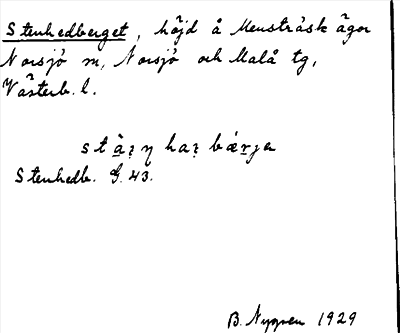 Stenhedberget, höjd å Mensträsk ägor
Norsjö sn, Norsjö och Malå tg,
Västerb. l.
Stenhedb. G. 43.
B. Nygren 1929